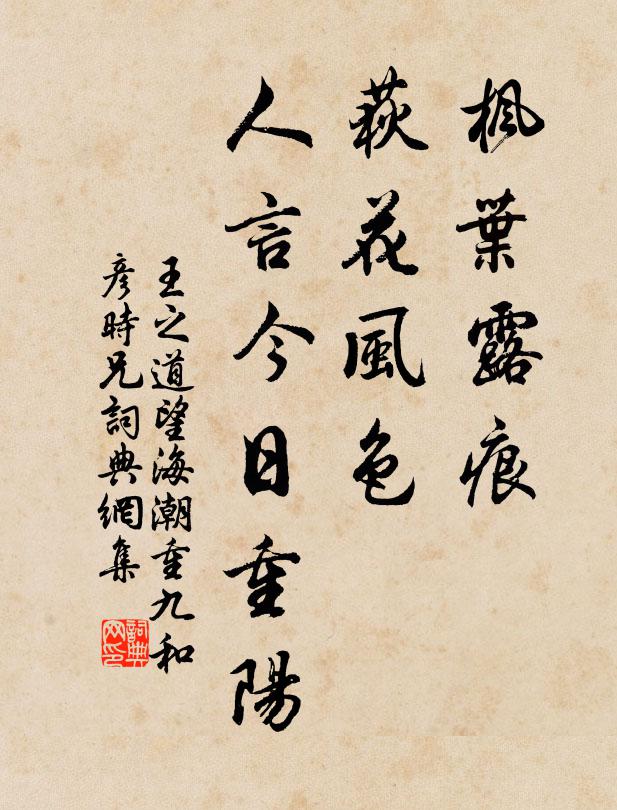 楓葉露痕
萩花風色
人言今日重陽
王之道望海潮重九和
彦時兄詞典網集
詞典网印